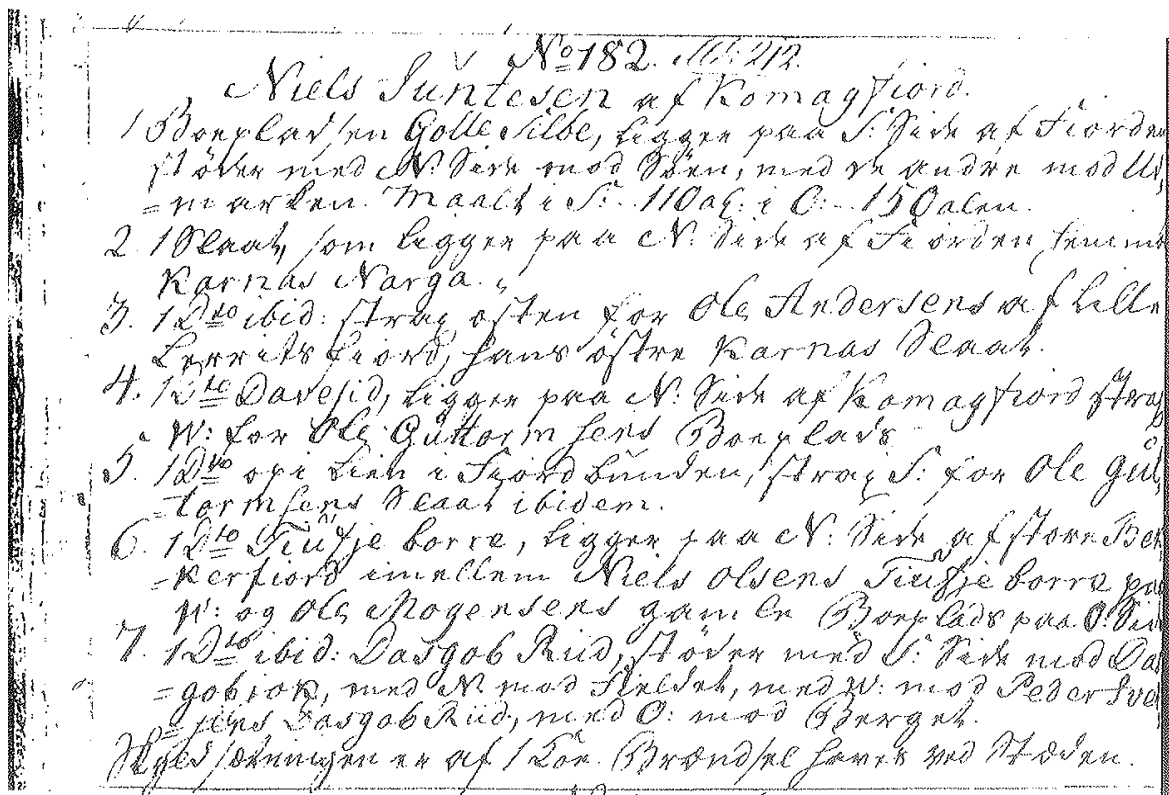 No 182. M. 212.
Niels Suntesen af Komagfiord.
1 Boepladsen Golle Silbe, ligger paa S: Side af Fiorden
støder med N: Side mod Søen, med de andre mod Ud,
=marken. Maalt i S: 110 al: i O: 150 alen.
2. 1 Slaat, som ligger paa N: Side af Fiorden
Karnas Narga.
3. 1 Dto ibid: strax østen for Ole Andersens af Lille
Lerritsfiord, hans østre Karnas Slaat.
4. 1 Dto Davesid, ligger paa N: Side af Komagfiord strax
W: for Ole Guttormsens Boeplads
5. 1 Dto op i Lien i Fiordbunden, strax S: for Ole Gut
=tormsens Slaat ibidem.
6. 1 Dto Tiufje borre, ligger paa N: Side af store Bek
=kerfiord imellem Niels Olsens Tiufje borre paa
W: og Ole Mogensens gamle Boeplads paa O: Side
7. 1 Dto ibid: Dasgob Riid, støder med S: Side mod Da
=gobjok, med N: mod Fieldet, med W: mod Peder Sve
=sens Dasgob Riid, med O: mod Berget.
Skyldsætningen er af 1 Koe. Brændsel haves ved Stæden.